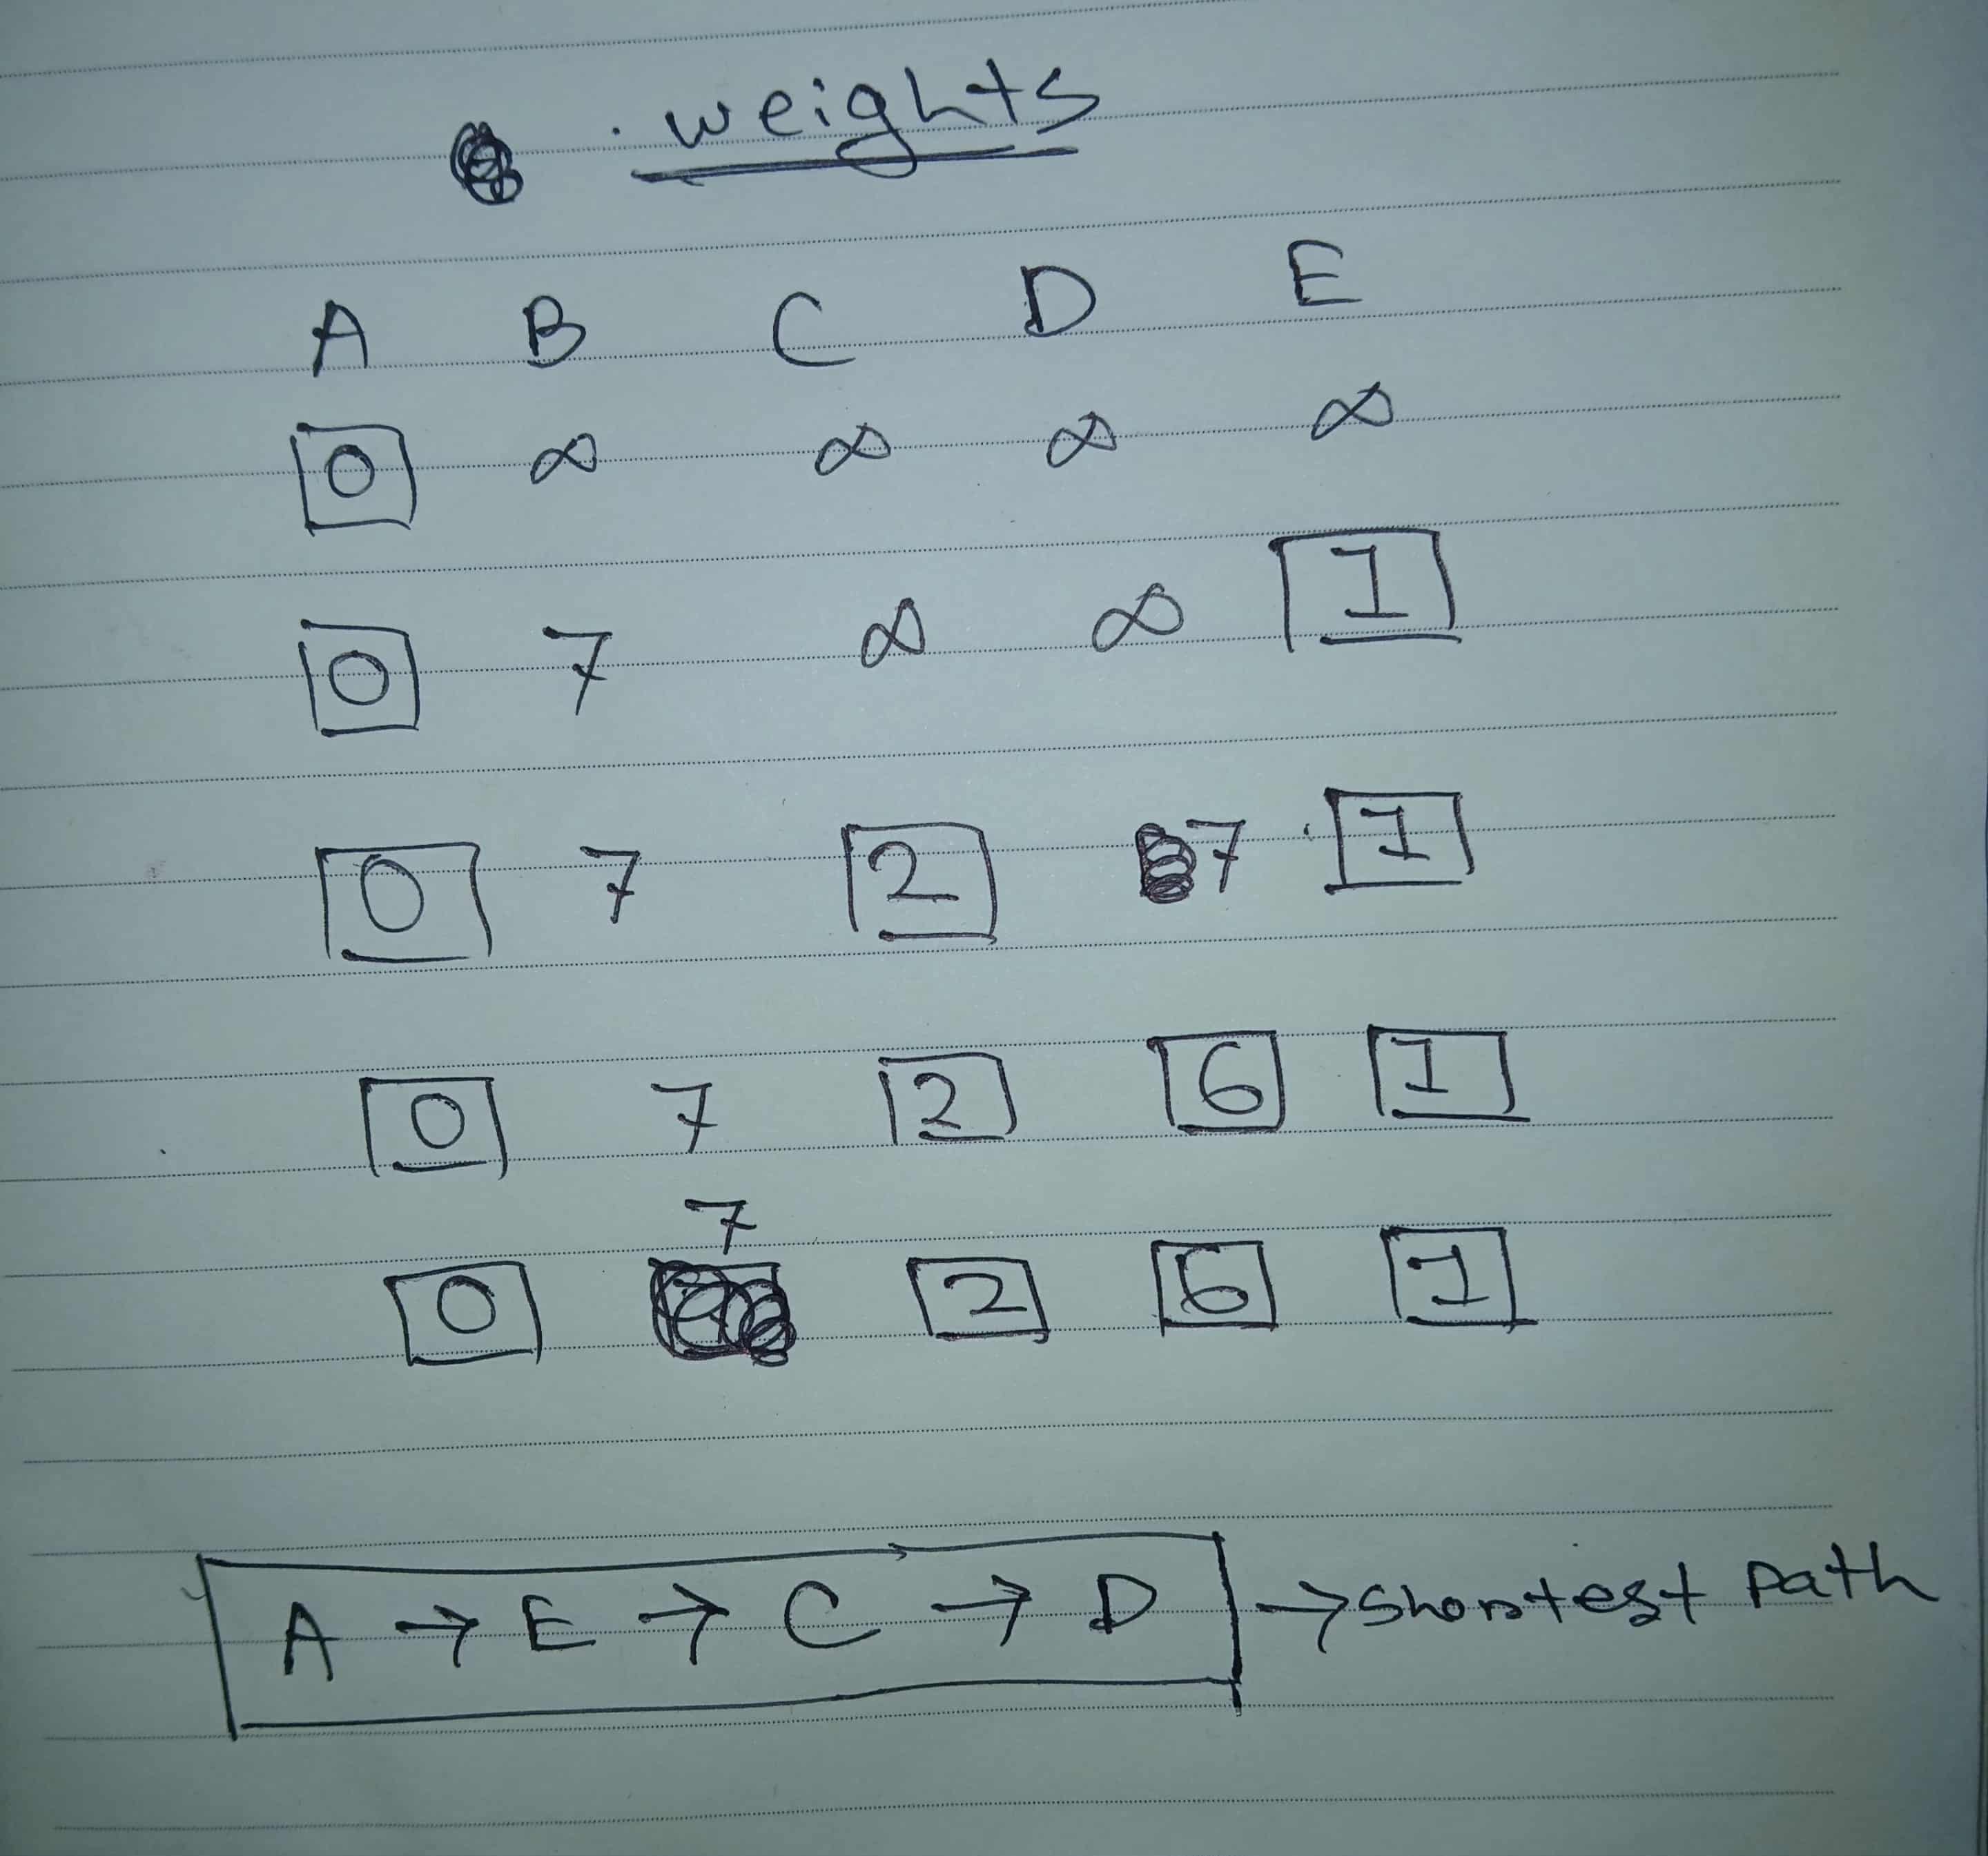 weights
A B C D E
0 ∞ ∞ ∞ ∞
0 7 ∞ ∞ 1
0 7 2 7 1
0 7 2 6 1
7
0 2 6 1
A → E → C → D → Shortest Path